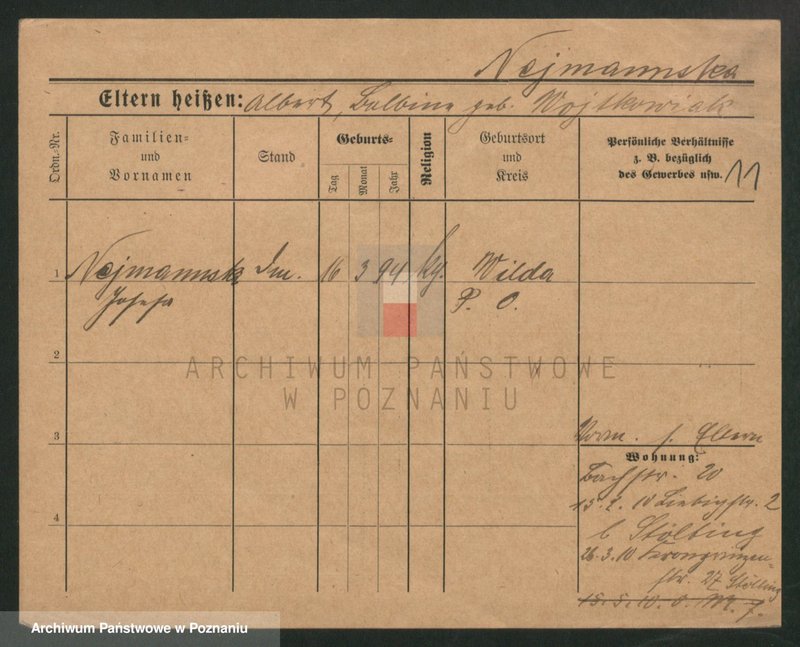 Nejmannska
Eltern heißen: Albert, Balbina geb. Wojtkowiak
Ordn.-Nr.
Familien-
und
Vornamen
Stand
Geburts-
Tag
Monat
Jahr
Religion
Geburtsort
und
Kreis
Persönliche Verhältnisse
z. B. bezüglich
des Gewerbes usw.
11
1
Nejmannsk
Josefa
16
3
94
Wilda
P. O.
2
ARCHIWUM PAŃSTWOWE
W POZNANIU
3
s. Eltern
Wohnung:
Bachstr. 20
15.2.10 Liebigstr. 2
b Stölting
26.3.10 Kronprinzen-
str. 27 Stölting
4
15.5.10
Archiwum Państwowe w Poznaniu